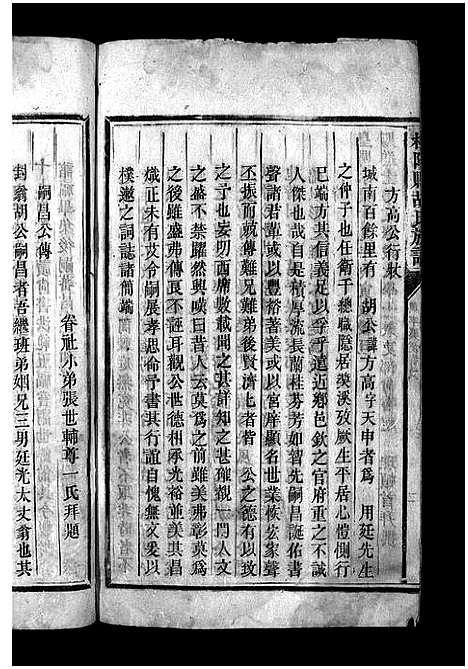 方高公行狀
城南百餘里有 胡公諱方高字天申者爲 用廷先生
之仲子也任衛千總職隱居溪攷厥生平居心愷惻行
已端方其信義足以孚于遠近鄉邑欽之官府重之不誠
人傑也哉自是積厚流長蘭桂芬芳如智先嗣昌誕佑書
聲諸君籌美或以豐裕著或以宮庠顯名世業恢宏家聲
丕振而競傳難兄難弟後賢濟上者皆 公之德有以致
之也予忝叨西席數載聞之甚詳知之甚確觀一門人文
之盛不禁躍然興嘆曰昔人云莫爲之前雖美弗彰莫爲
之後雖盛弗傳良不誣耳觀公世德相承光裕並美其昌
熾正未有艾今嗣展孝思命予書其行誼自愧無文爰以
樸遬之詞誌諸簡端
眷祉小弟張世輔尊一氏拜題
嗣昌公傳
封翁胡公嗣昌者吾繼班弟姻兄三男廷光太丈翁也其